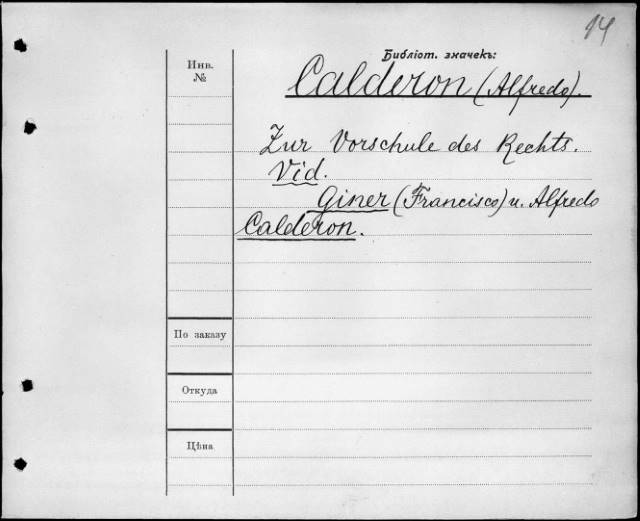 14
Библіот. значекъ:
Инв.
№
Calderon (Alfredo).
Zur Vorschule des Rechts.
Vid.
Giner (Francisco) u. Alfredo
Calderon.
По заказу
Откуда
Цѣна